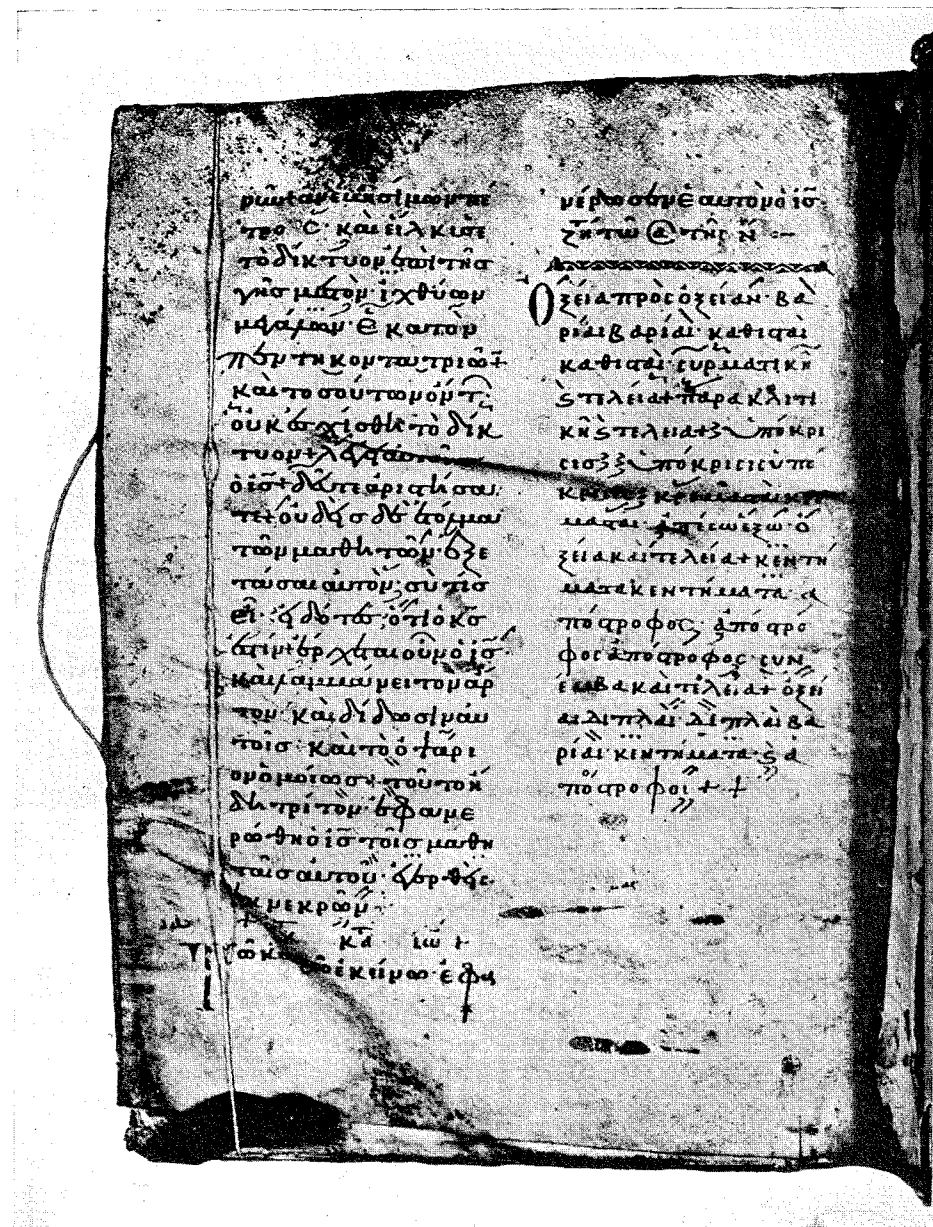 νῦν+ἀνέβη σίμων πέ
τρος· καὶ εἵλκυσε
τὸ δίκτυον ἐπὶ τῆς
γῆς μεστὸν· ἰχθύων
μεγάλων· ἑκατὸν
πεντηκοντατριῶν+
καὶ τοσούτων ὄντ
οὐκ ἐσχίσθη τὸ δίκ
τυον+λέγει αὐτοῖς
ὁ ις̅+δεῦτε ἀριστήσα
τε+οὐδεὶς δὲ ἐτόλμα
τῶν μαθητῶν· ἐξε
τάσαι αὐτὸν· σὺ τίς
εἶ· εἰδότες· ὅτι ὁ κς̅
ἐστίν+ἔρχεται οὖν ὁ ις̅
καὶ λαμβάνει τὸν ἄρ
τον· καὶ δίδωσιν αὐ
τοῖς· καὶ τὸ ὀψάρι
ον ὁμοίως+τοῦτο ἤ
δη τρίτον· ἐφανε
ρώθη ὁ ις̅ τοῖς μαθη
ταῖς αὐτοῦ· ἐγερθεὶς
ἐκ νεκρῶν·
κα̅ ιω̅ +
Τῷ κ ἐκείνῳ· ἐφα
νέρωσεν ἑαυτὸν ὁ ις̅·
ζήτ τῷ α τῆς Ν :—
Ὀξεῖα πρὸς ὀξεῖαν· βα
ρίαι βαρίαι· καθισταὶ
καθισταὶ· συρματικὴ
ς τελεία+παρακλιτι
κὴ ς τελεία+ὑπόκρι
σις ὑπόκρισις ὑπό
κρισις κρεμασταὶ κρε
μασταὶ· ἀπέσω ἔξω· ὀ
ξεία καὶ τελεία+κεντή
ματα κεντήματα· ἀ
πόστροφος· ἀπόστρο
φος ἀπόστροφος· συν
έμβα καὶ τελεία+ὀξεῖ
αι διπλαῖ· διπλαῖ βα
ρίαι· κεντήματα· ς ἀ
πόστροφοι + +